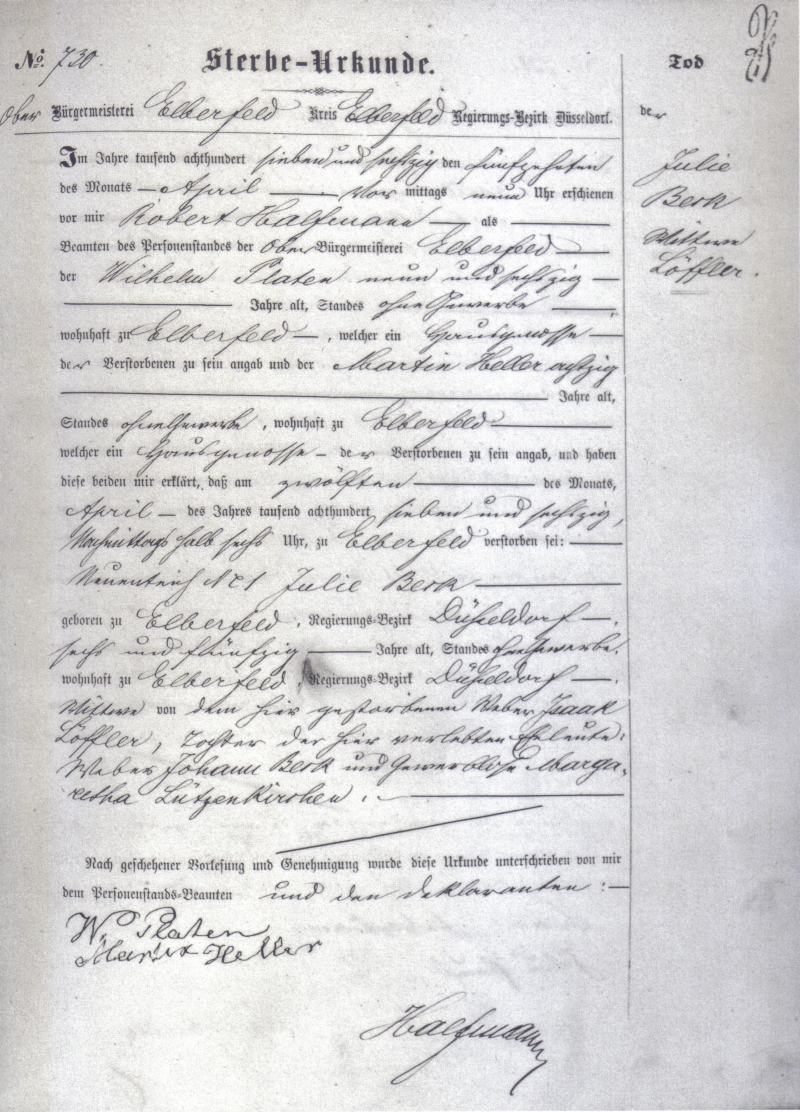 No. 730.
Sterbe-Urkunde.
Ober Bürgermeisterei Elberfeld Kreis Elberfeld Regierungs-Bezirk Düsseldorf.
Im Jahre tausend achthundert sieben und sechszig den fünfzehnten
des Monats April Vor mittags neun Uhr erschienen
vor mir Robert Halfmann als
Beamten des Personenstandes der Ober Bürgermeisterei Elberfeld
der Wilhelm Platen neun und sechszig
Jahre alt, Standes ohne Gewerbe,
wohnhaft zu Elberfeld, welcher ein Hausgenosse
der Verstorbenen zu sein angab und der Martin Heller achtzig
Jahre alt,
Standes ohne Gewerbe, wohnhaft zu Elberfeld
welcher ein Hausgenosse der Verstorbenen zu sein angab, und haben
diese beiden mir erklärt, daß am zwölften des Monats,
April des Jahres tausend achthundert sieben und sechszig,
Nachmittags halb sechs Uhr, zu Elberfeld verstorben sei:
Neuenteich No 1 Julie Berk
geboren zu Elberfeld, Regierungs-Bezirk Düsseldorf,
sechs und fünfzig Jahre alt, Standes ohne Gewerbe,
wohnhaft zu Elberfeld, Regierungs-Bezirk Düsseldorf.
Wittwe von dem hier gestorbenen Weber Isaak
Löffler, Tochter der hier verlebten Eheleute:
Weber Johann Berk und Gewerblose Marga-
retha Lützenkirchen.
Nach geschehener Vorlesung und Genehmigung wurde diese Urkunde unterschrieben von mir
dem Personenstands-Beamten und den Deklaranten:
W. Platen
Martin Heller
Halfmann
Tod
der
Julie
Berk
Wittwe
Löffler.